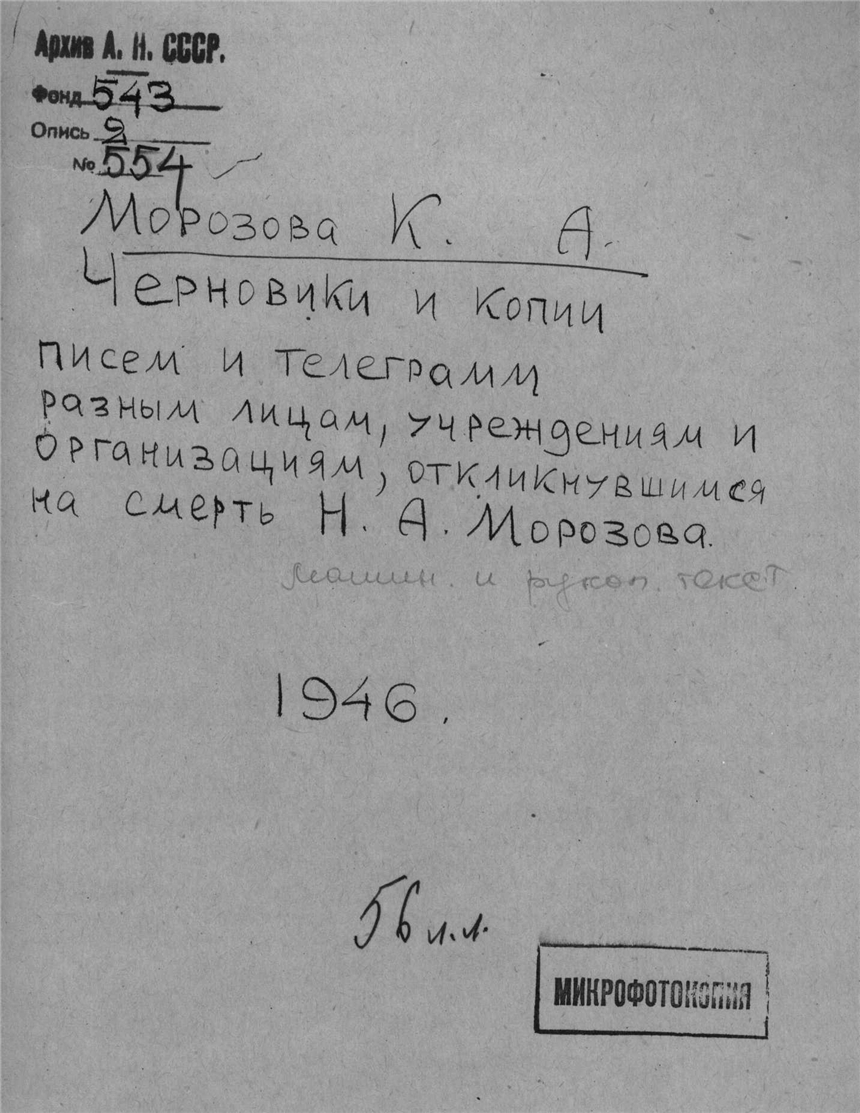 Архив А. Н. СССР.
Фонд 543
Опись 2
№ 554
Морозова К. А.
Черновики и копии
писем и телеграмм
разным лицам, учреждениям и
организациям, откликнувшимся
на смерть Н. А. Морозова.
машин. и рукоп. текст
1946.
56 л.л.
МИКРОФОТОКОПИЯ